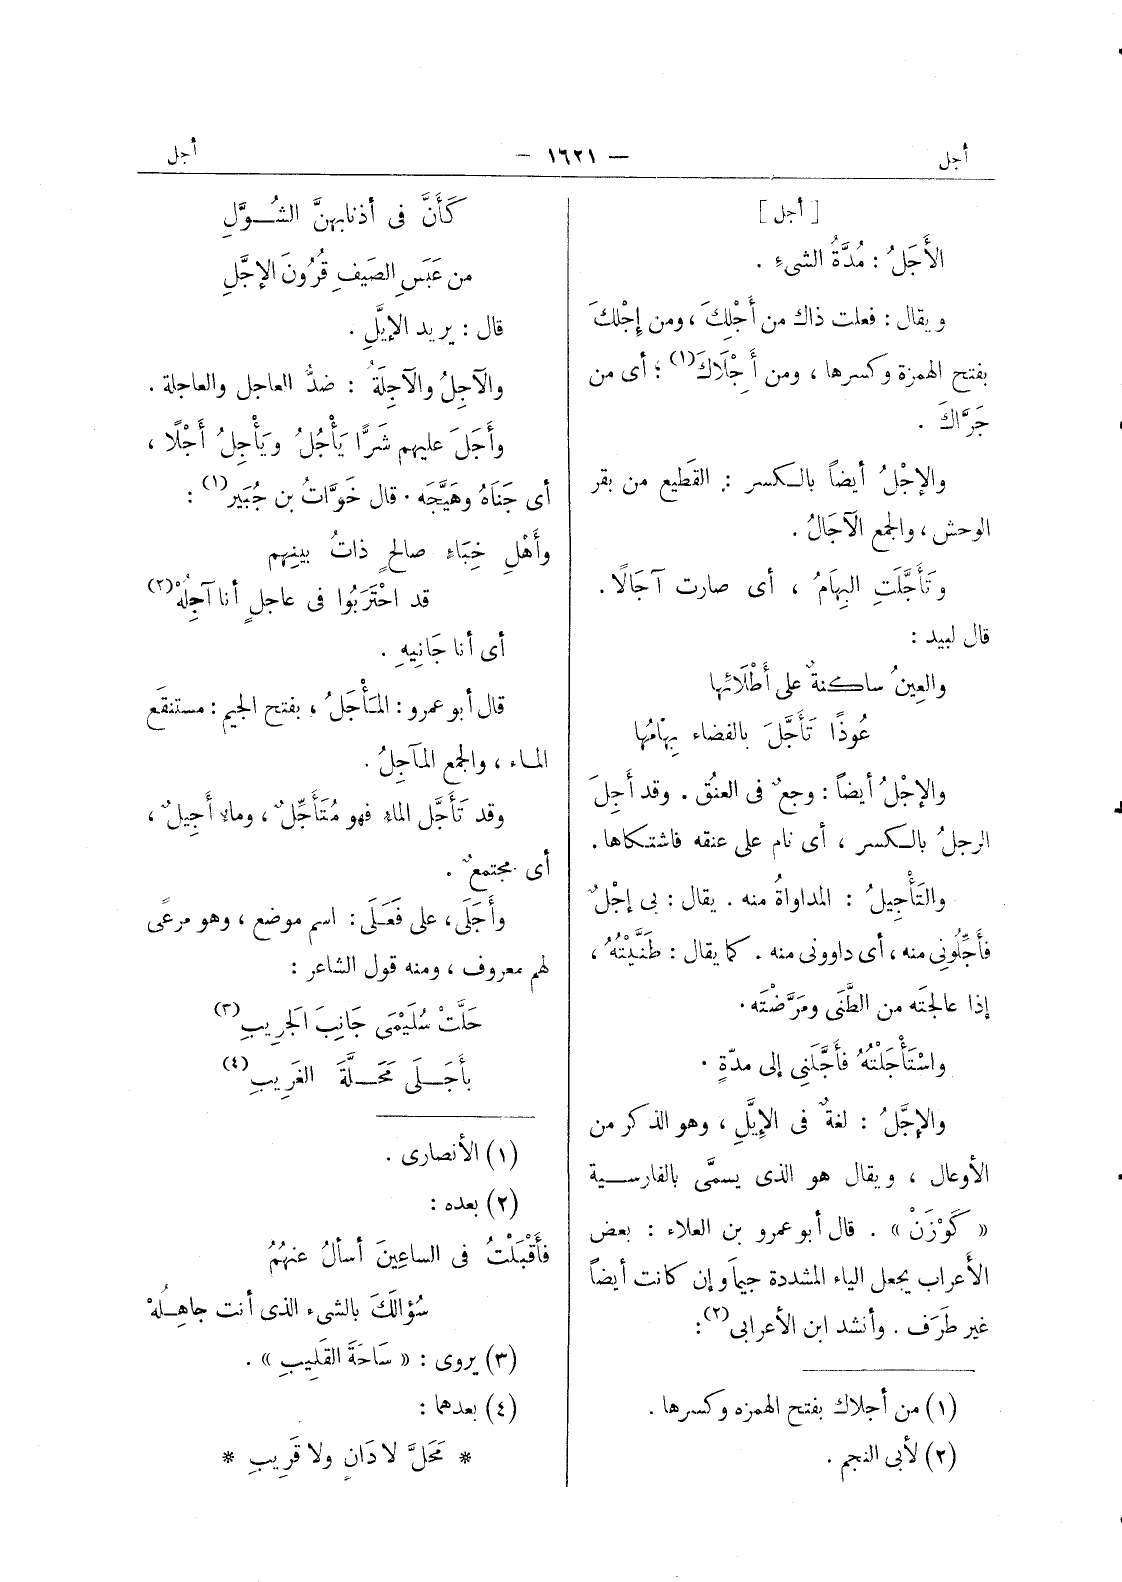 أجل — ١٦٢١ — أجل
[ أجل ]
الأَجَلُ : مُدَّةُ الشىءِ .
ويقال : فعلت ذاك من أَجْلِكَ ، ومن إِجْلِكَ
بفتح الهمزة وكسرها ، ومن أَجْلَاكَ(١) ؛ أى من
جَرَّاكَ .
والإجْلُ أيضاً بالكسر : القَطيع من بقر
الوحش ، والجمع الآجَالُ .
وتَأَجَّلَتِ البِهَامُ ، أى صارت آجَالًا .
قال لبيد :
والعِينُ ساكنةٌ على أَطْلَائِها
عُوذًا تَأَجَّلَ بالفضاء بِهَامُها
والإجْلُ أيضاً : وجعٌ فى العنُق . وقد أَجِلَ
الرجلُ بالكسر ، أى نام على عنقه فاشتكاها .
والتَأْجِيلُ : المداواةُ منه . يقال : بى إجْلٌ
فأَجِّلُونِى منه ، أى داوونى منه . كما يقال : طَنَّيْتُهُ ،
إذا عالجتَه من الطَّنَى ومَرَّضْتَه .
واسْتَأْجَلْتُهُ فأَجَّلَنِى إلى مدّةٍ .
والإجَّلُ : لغةٌ فى الإيَّلِ ، وهو الذكر من
الأوعال ، ويقال هو الذى يسمَّى بالفارسية
« كَوْزَنْ » . قال أبو عمرو بن العلاء : بعض
الأعراب يجعل الياء المشددة جيماً وإن كانت أيضاً
غير طَرَف . وأنشد ابن الأعرابى(٢) :
(١) من أجلاك بفتح الهمزه وكسرها .
(٢) لأبى النجم .
كَأَنَّ فى أذنابهنَّ الشُوَّلِ
من عَبَسِ الصَيفِ قُرُونَ الإجَّلِ
قال : يريد الإيَّلِ .
والآجِلُ والآجِلَةُ : ضدُّ العاجل والعاجلة .
وأَجَلَ عليهم شَرًّا يَأْجُلُ ويَأْجِلُ أَجْلًا ،
أى جَنَاهُ وهَيَّجَه . قال خَوَّاتُ بن جُبَير(١) :
وأَهْلِ خِبَاءٍ صالحٍ ذاتُ بينِهم
قد احْتَرَبُوا فى عاجلٍ أنا آجِلُهْ(٢)
أى أنا جَانِيهِ .
قال أبو عمرو : المَأْجَلُ ، بفتح الجيم : مستنقَع
الماء ، والجمع المآجِلُ .
وقد تَأَجَّل الماء فهو مُتَأَجِّلٌ ، وماء أَجِيلٌ ،
أى مجتمعٌ .
وأَجَلَى ، على فَعَلَى : اسم موضع ، وهو مرعًى
لهم معروف ، ومنه قول الشاعر :
حَلَّتْ سُلَيْمَى جَانِبَ الجَرِيبِ(٣)
بأَجَلَى مَحَلَّةَ الغَرِيبِ(٤)
(١) الأنصارى .
(٢) بعده :
فأَقْبَلْتُ فى الساعِينَ أسألُ عنهُمُ
سُؤالَكَ بالشىء الذى أنت جاهِلُهْ
(٣) يروى : « سَاحَةَ القَلِيبِ » .
(٤) بعدها :
* مَحَلَّ لا دَانٍ ولا قَرِيبِ *